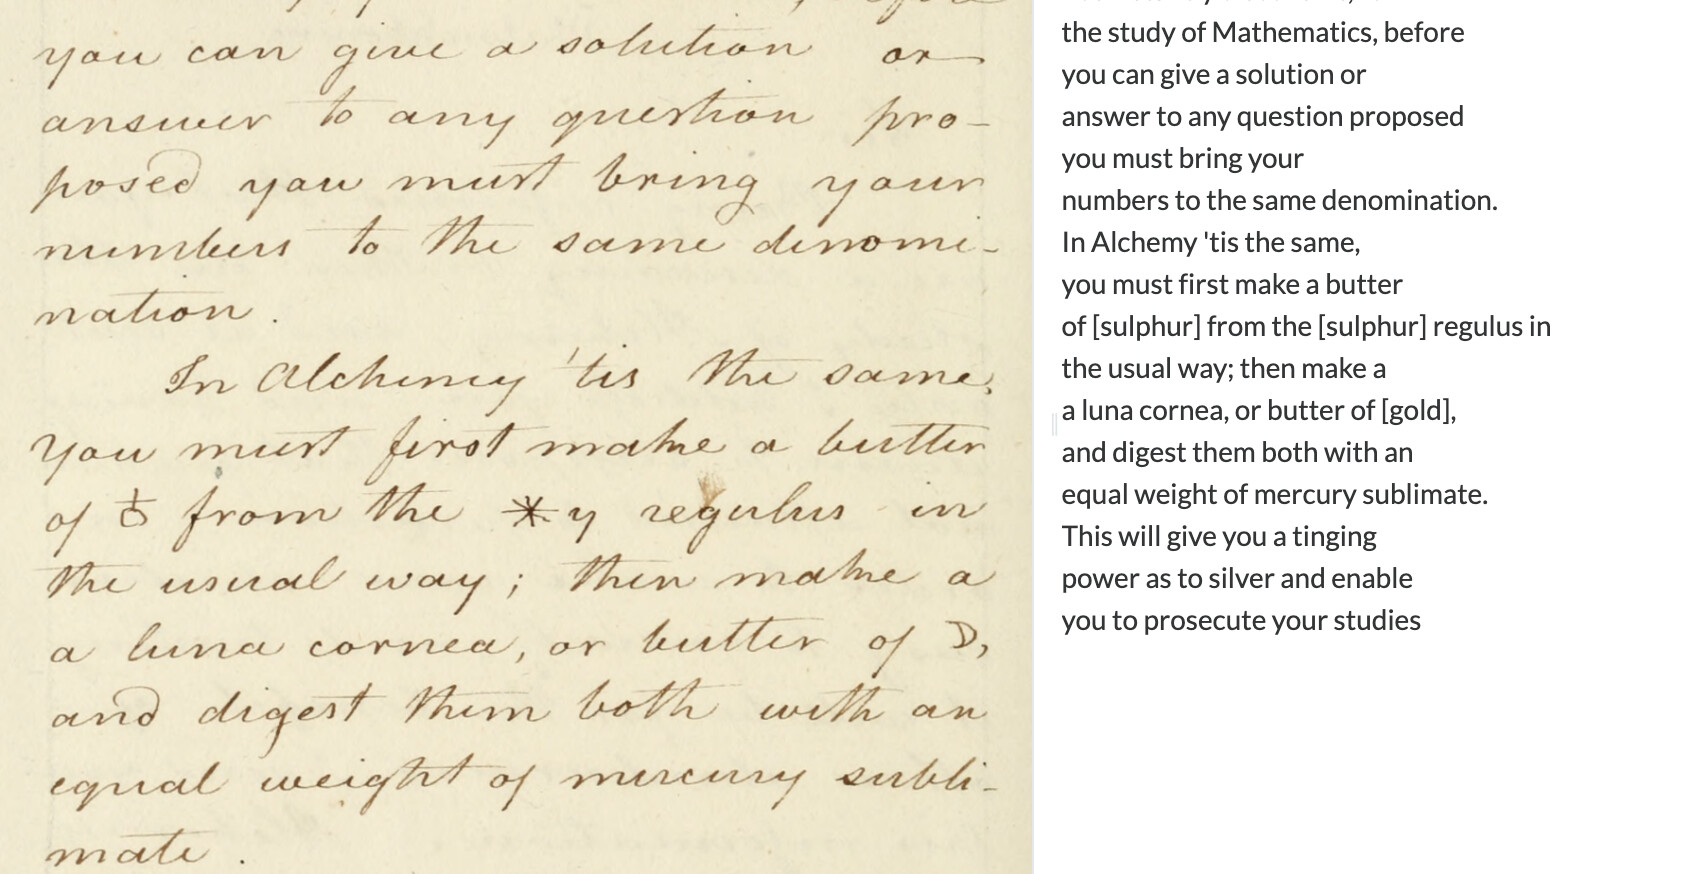 you can give a solution or
answer to any question pro-
posed you must bring your
numbers to the same denomi-
nation.
In Alchemy 'tis the same,
you must first make a butter
of ♁ from the *y regulus in
the usual way; then make a
a luna cornea, or butter of ☽,
and digest them both with an
equal weight of mercury subli-
mate.
the study of Mathematics, before
you can give a solution or
answer to any question proposed
you must bring your
numbers to the same denomination.
In Alchemy 'tis the same,
you must first make a butter
of [sulphur] from the [sulphur] regulus in
the usual way; then make a
a luna cornea, or butter of [gold],
and digest them both with an
equal weight of mercury sublimate.
This will give you a tinging
power as to silver and enable
you to prosecute your studies